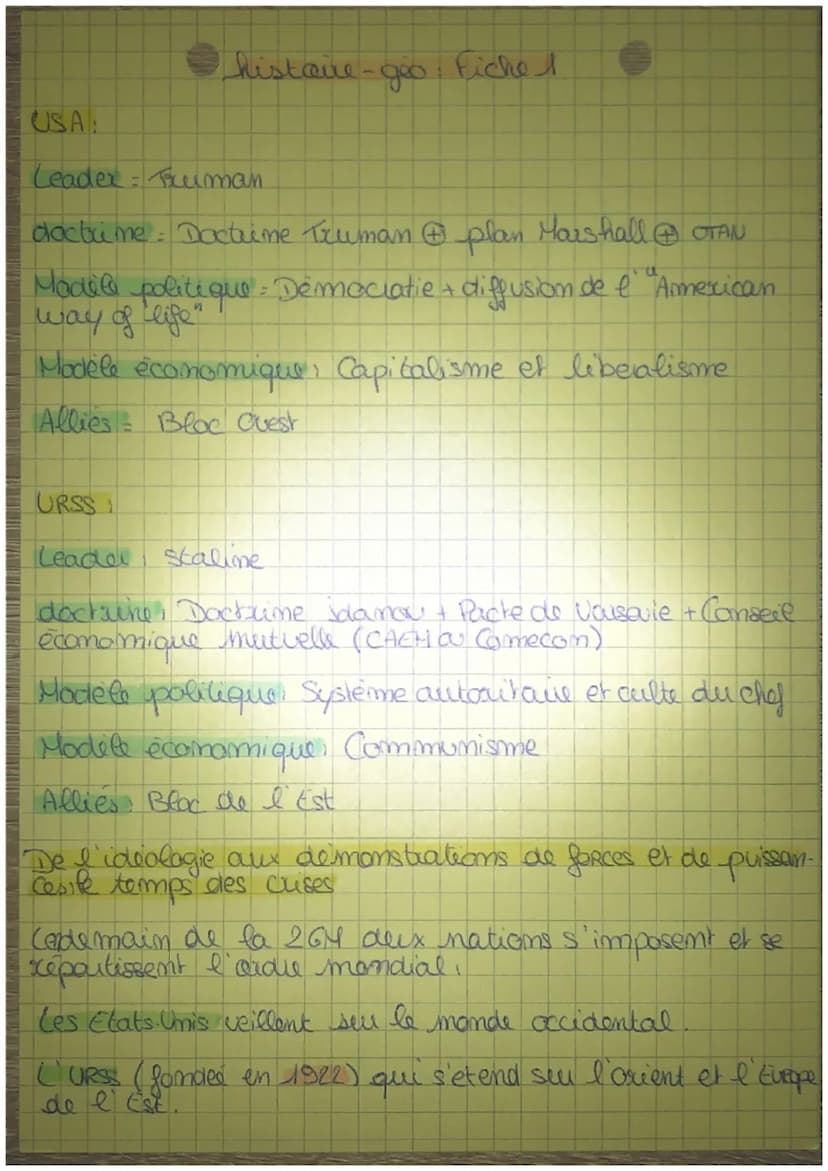 histoire-géo : Fiche 1
USA :
Leader = Truman
doctrine : Doctrine Truman ⊕ plan Marshall ⊕ OTAN
Modèle politique = Démocratie + diffusion de l' "Ammerican
way of life"
Modèle économique : Capitalisme et libealisme
Alliés = Bloc Ouest
URSS :
Leader : Staline
doctrine : Doctrine Jdanov + Pacte de Varsovie + Conseil
économique mutuelle (CAEM ou Comecon)
Modèle politique : Système autoritaire et culte du chef
Modèle économique : Communisme
Alliés : Bloc de l'Est
De l'idéologie aux démonstrations de forces et de puissan-
ces : le temps des crises
Lendemain de la 2GM deux nations s'imposent et se
répartissent l'ordre mondial.
Les Etats-Unis veillent sur le monde occidental.
L'URSS (fondée en 1922) qui s'etend sur l'orient et l'Europe
de l'Est.